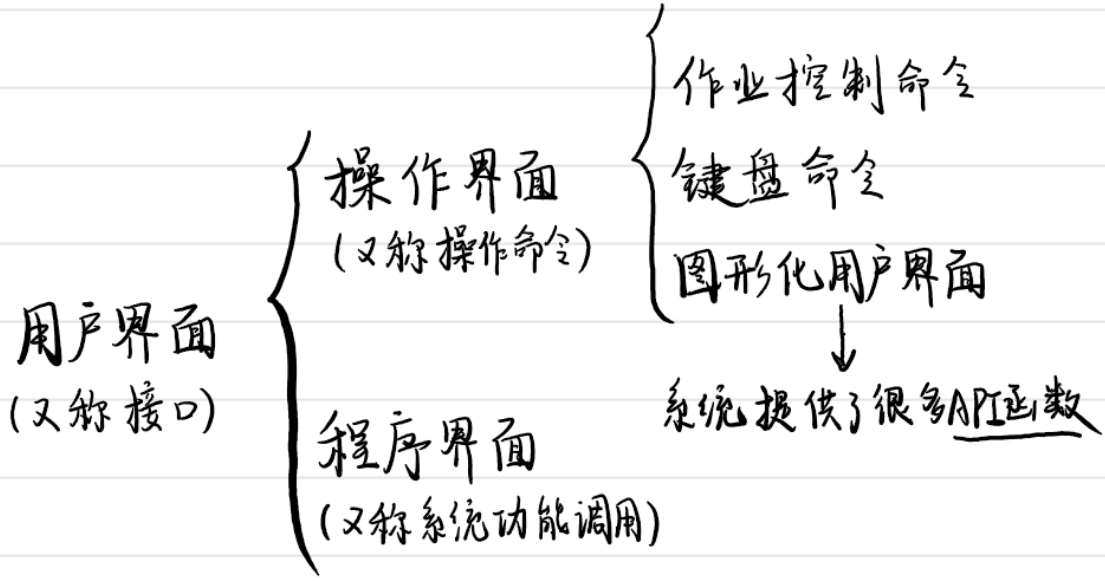 用户界面
(又称接口)
操作界面
(又称操作命令)
作业控制命令
键盘命令
图形化用户界面
系统提供了很多API函数
程序界面
(又称系统功能调用)